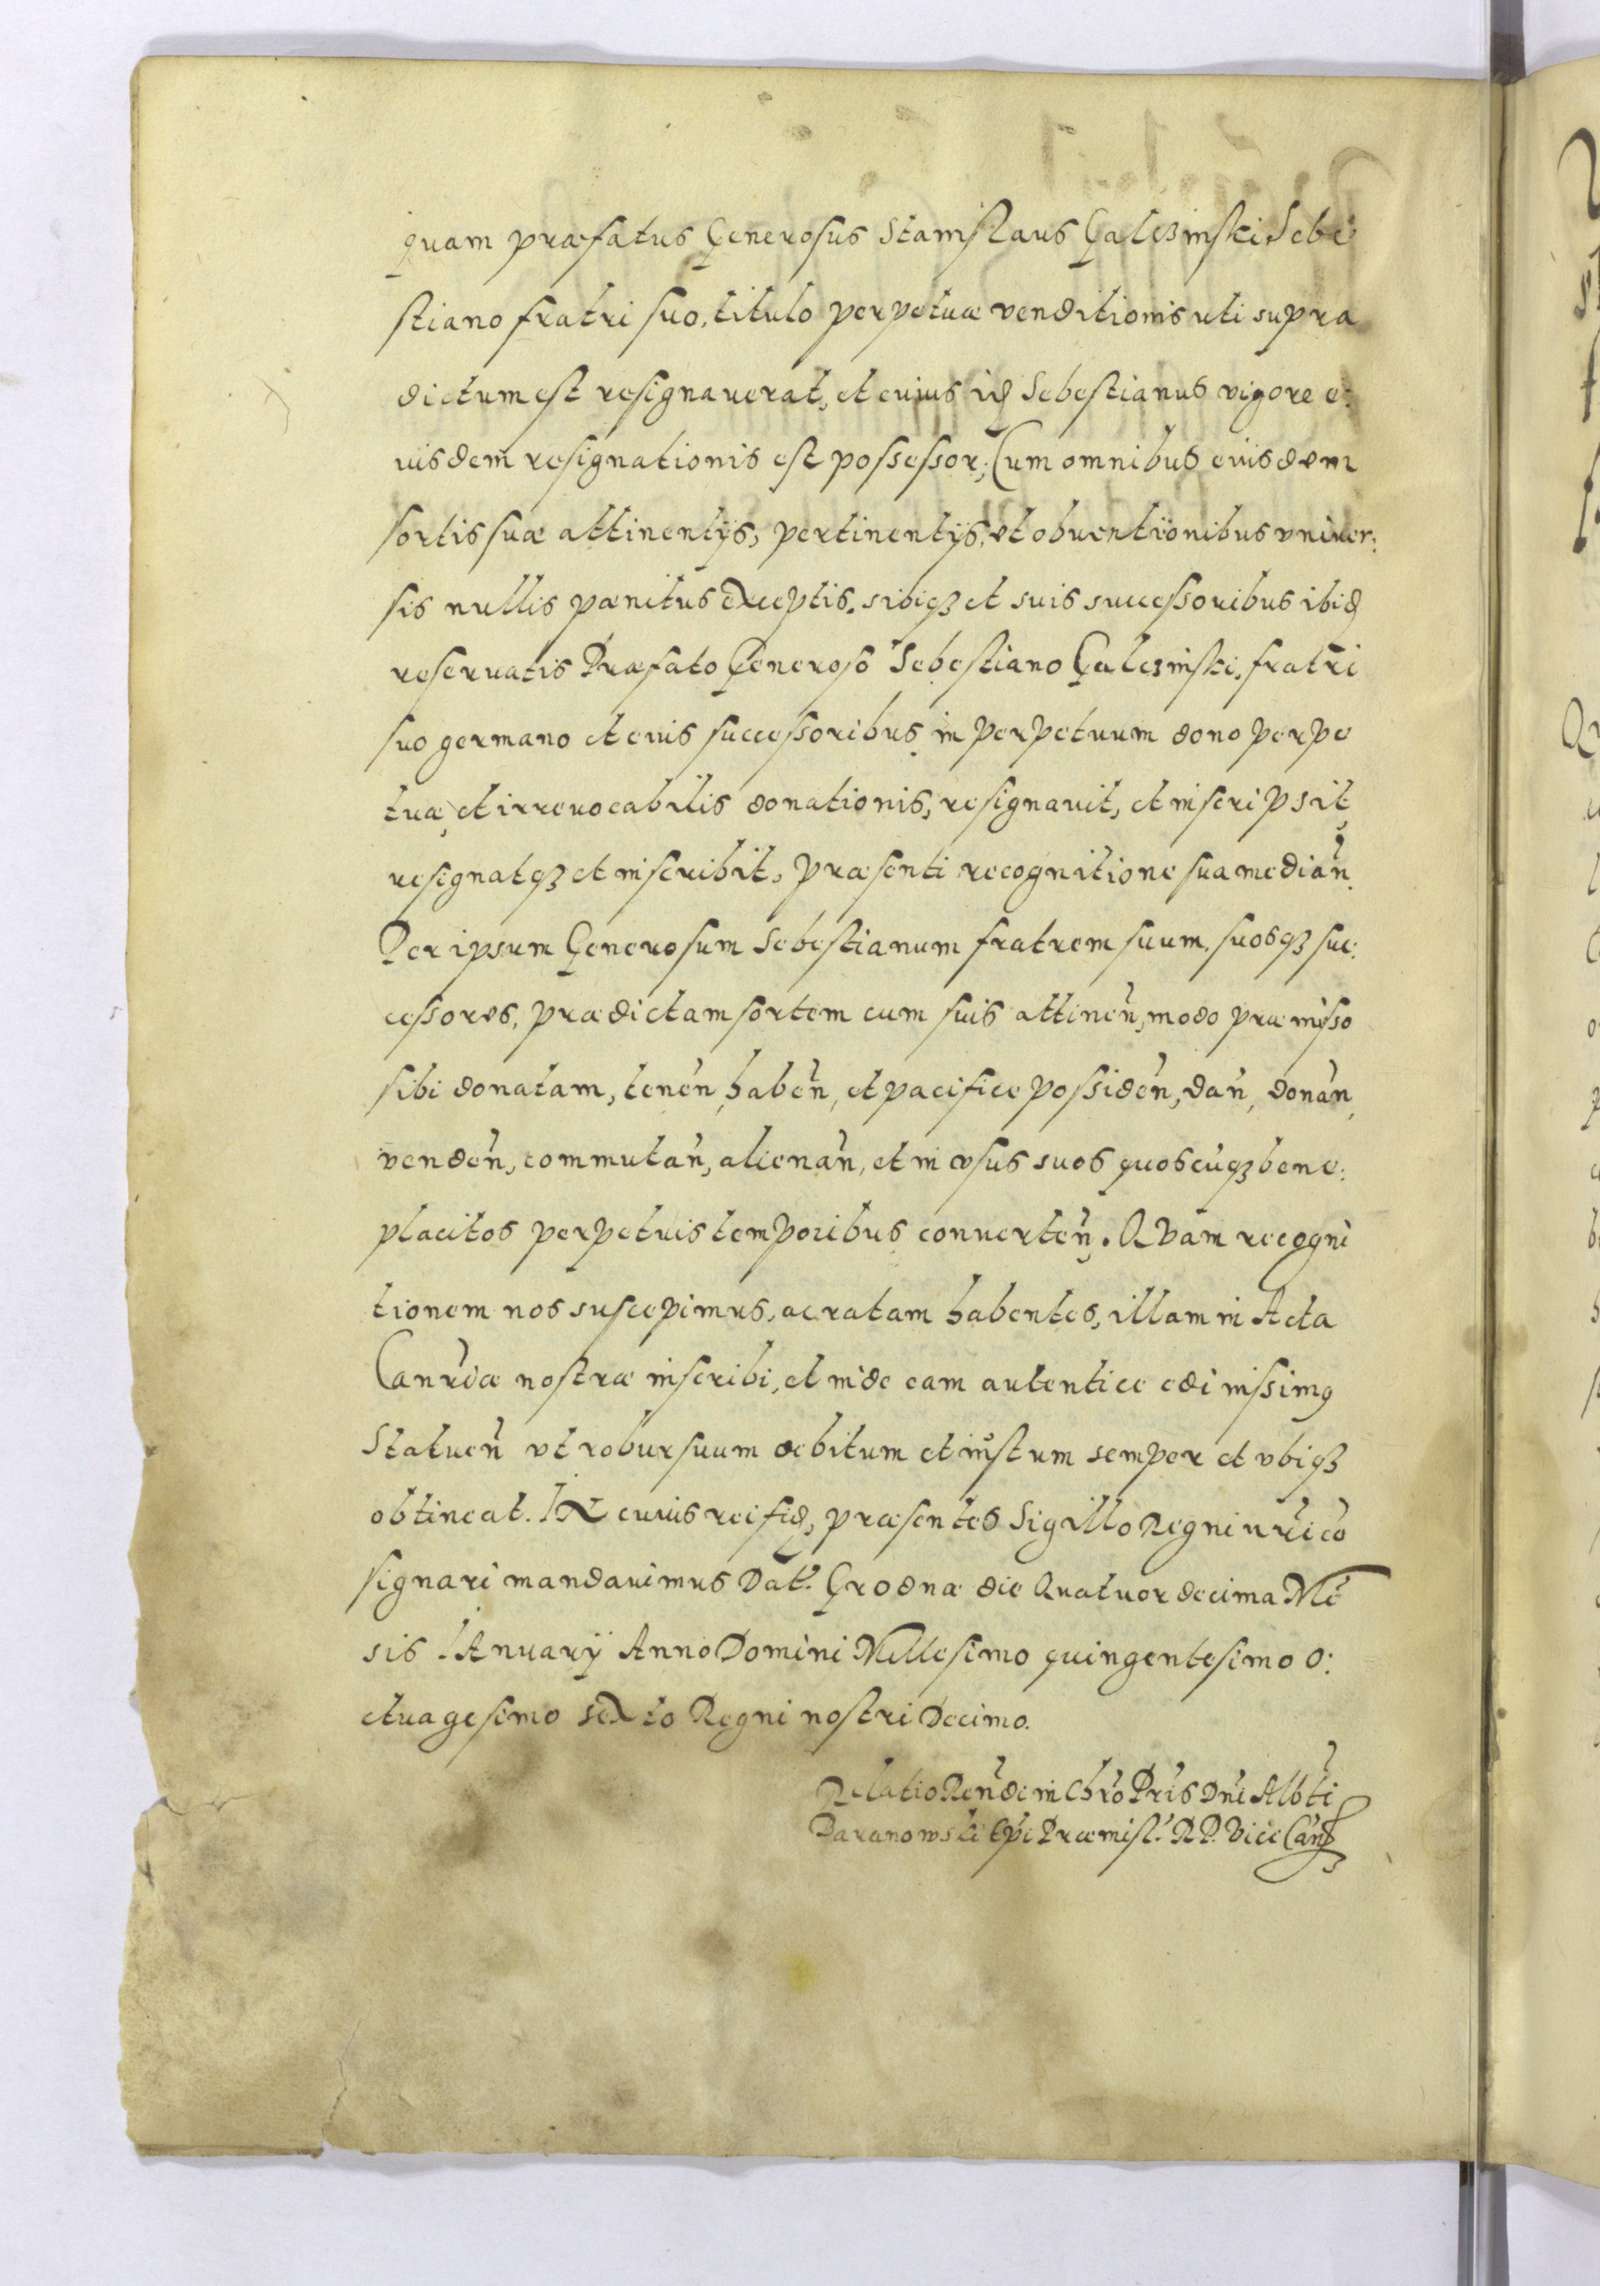 quam præfatus Generosus Stanislaus Galczinski Sebe
stiano fratri suo, titulo perpetuæ venditionis uti supra
dictum est resignaverat, et cuius id Sebestianus vigore e:
iusdem resignationis est possessor; Cum omnibus eiusdem
sortis suæ attinentijs, pertinentijs, et obventionibus univer:
sis nullis pænitus exceptis. sibiq3 et suis successoribus ibid
reservatis Præfato Generoso Sebestiano Galczinski, fratri
suo germano et eius successoribus in perpetuum dono perpe
tuæ, et irrevocabilis donationis, resignavit, et inscripsit,
resignatq3 et inscribit, præsenti recognitione sua median̄.
Per ipsum Generosum Sebestianum fratrem suum, suosq3 suc:
cessores, prædictam sortem cum suis attinen̄, modo præmisso
sibi donatam, tenen̄, haben̄, et pacifice possiden̄, dan̄, donan̄,
venden̄, commutan̄, alienan̄, et in usus suos quoscūq3 bene:
placitos perpetuis temporibus converten̄. Quam recogni
tionem nos suscepimus, ac ratam habentes, illam in Acta
Can̄riæ nostræ inscribi, et inde eam autentice edi iussimꝯ
Statuen̄ ut robur suum debitum et iustum semper et ubiq3
obtineat. In cuius rei fid, præsentes Sigillo Regni n̄ri cō
signari mandavimus Dat̄. Grodnæ die Quatuordecima Mē
sis Ianuarij Anno Domini Millesimo quingentesimo o:
ctuagesimo sexto Regni nostri Decimo.
Relatio Ren̄di in Chr̄o Pr̄is Dn̄i Alb̄ti
Baranowski Ep̄i Præmisl̄. R P. Vice Can̄